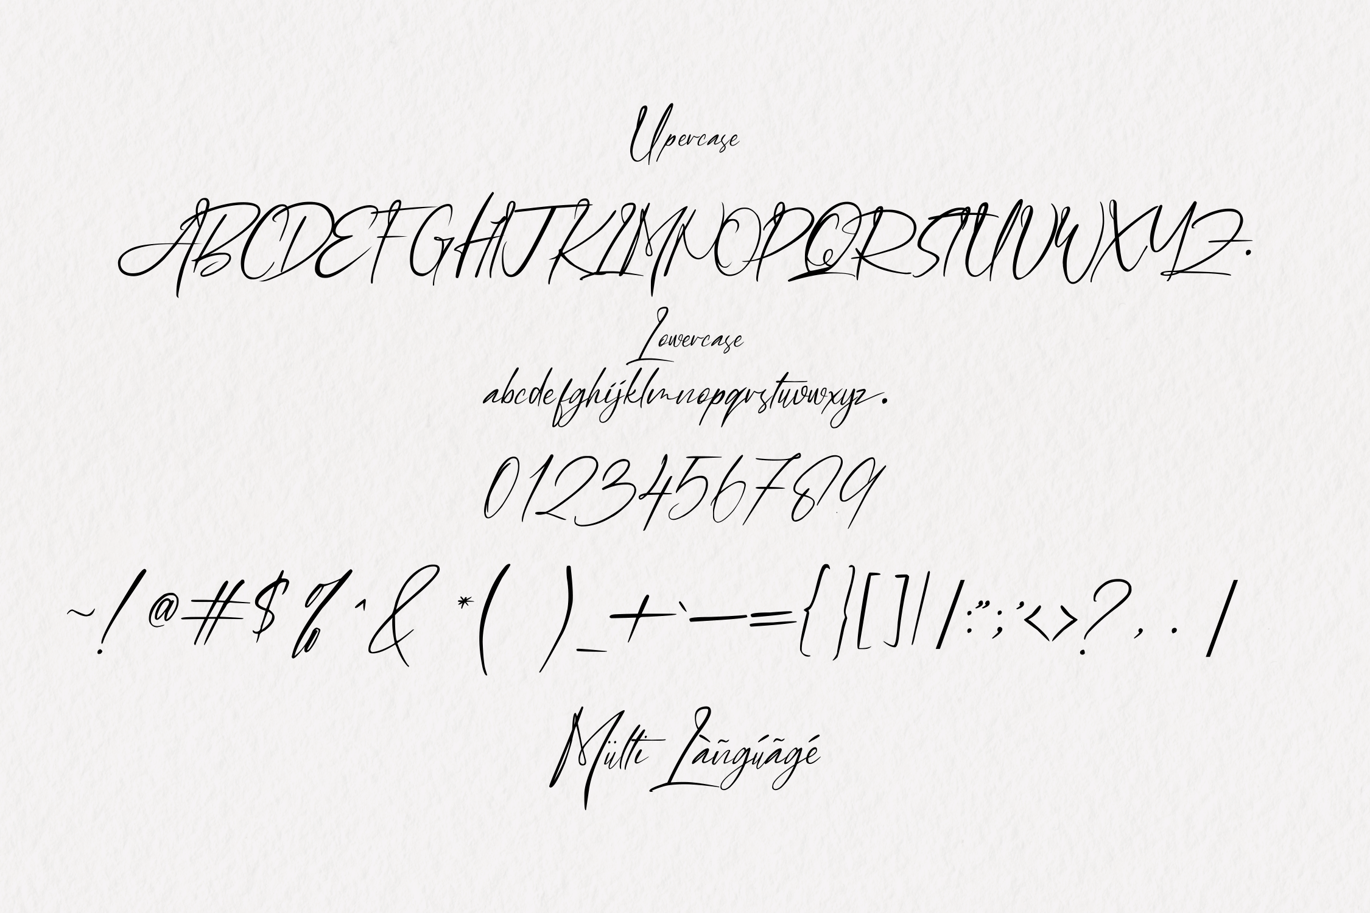 Upercase
ABCDEFGHIJKLMNOPQRSTUVWXYZ.
Lowercase
abcdefghijklmnopqrstuvwxyz.
0123456789
~!@#$%^&*()_+`—={}[]|/:";'<>?,./
Mülti Làñgúãgé